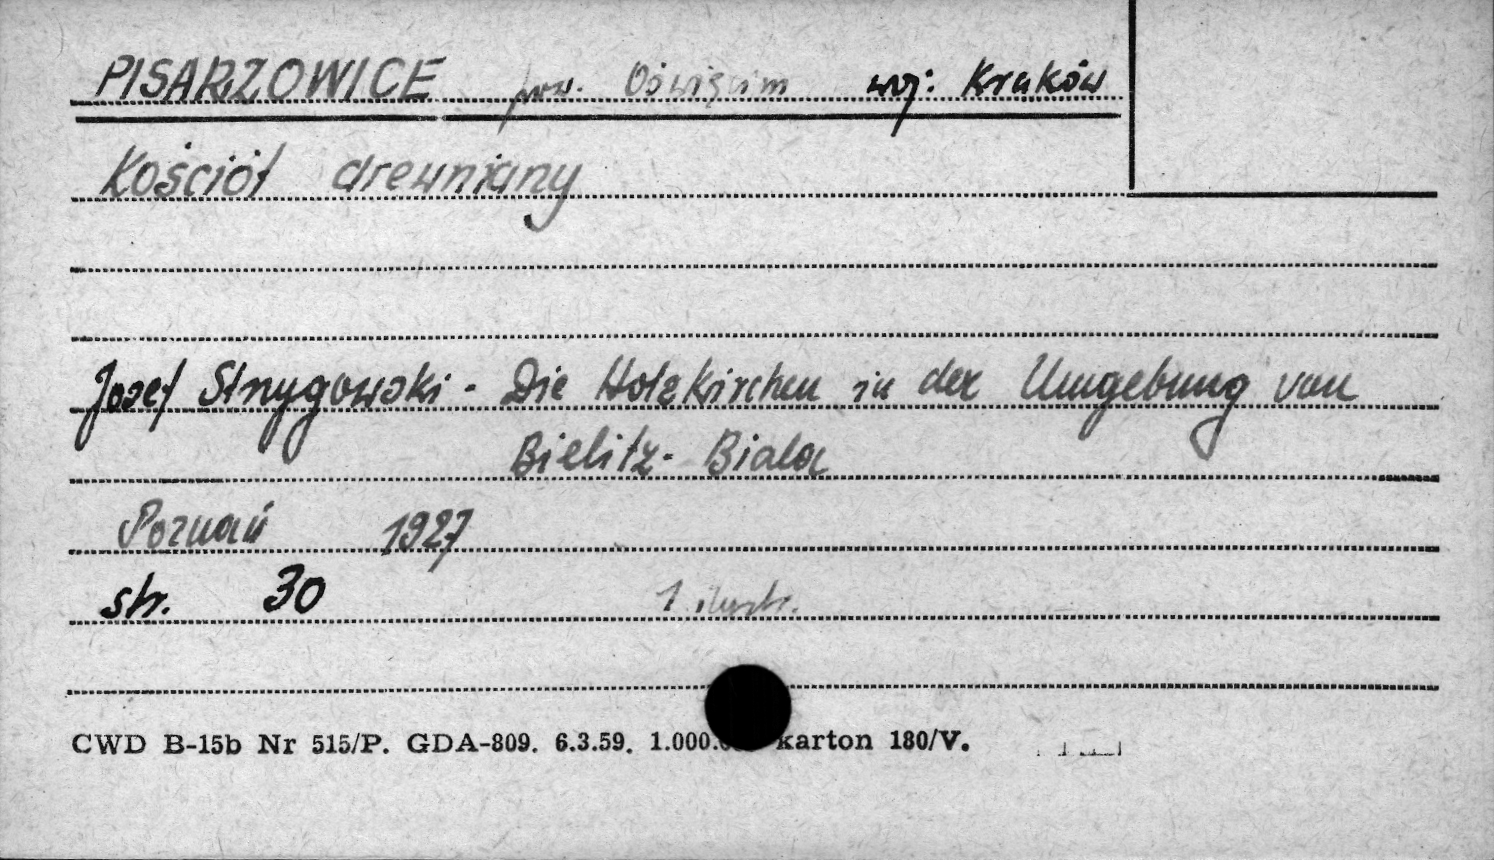 PISARZOWICE pow. Oświęcim woj: Kraków
Kościół drewniany
Josef Strzygowski - Die Holzkirchen in der Umgebung von
Bielitz- Biala
Poznań 1927
str. 30 1 ilustr.
CWD B-15b Nr 515/P. GDA-809. 6.3.59. 1.000. karton 180/V.